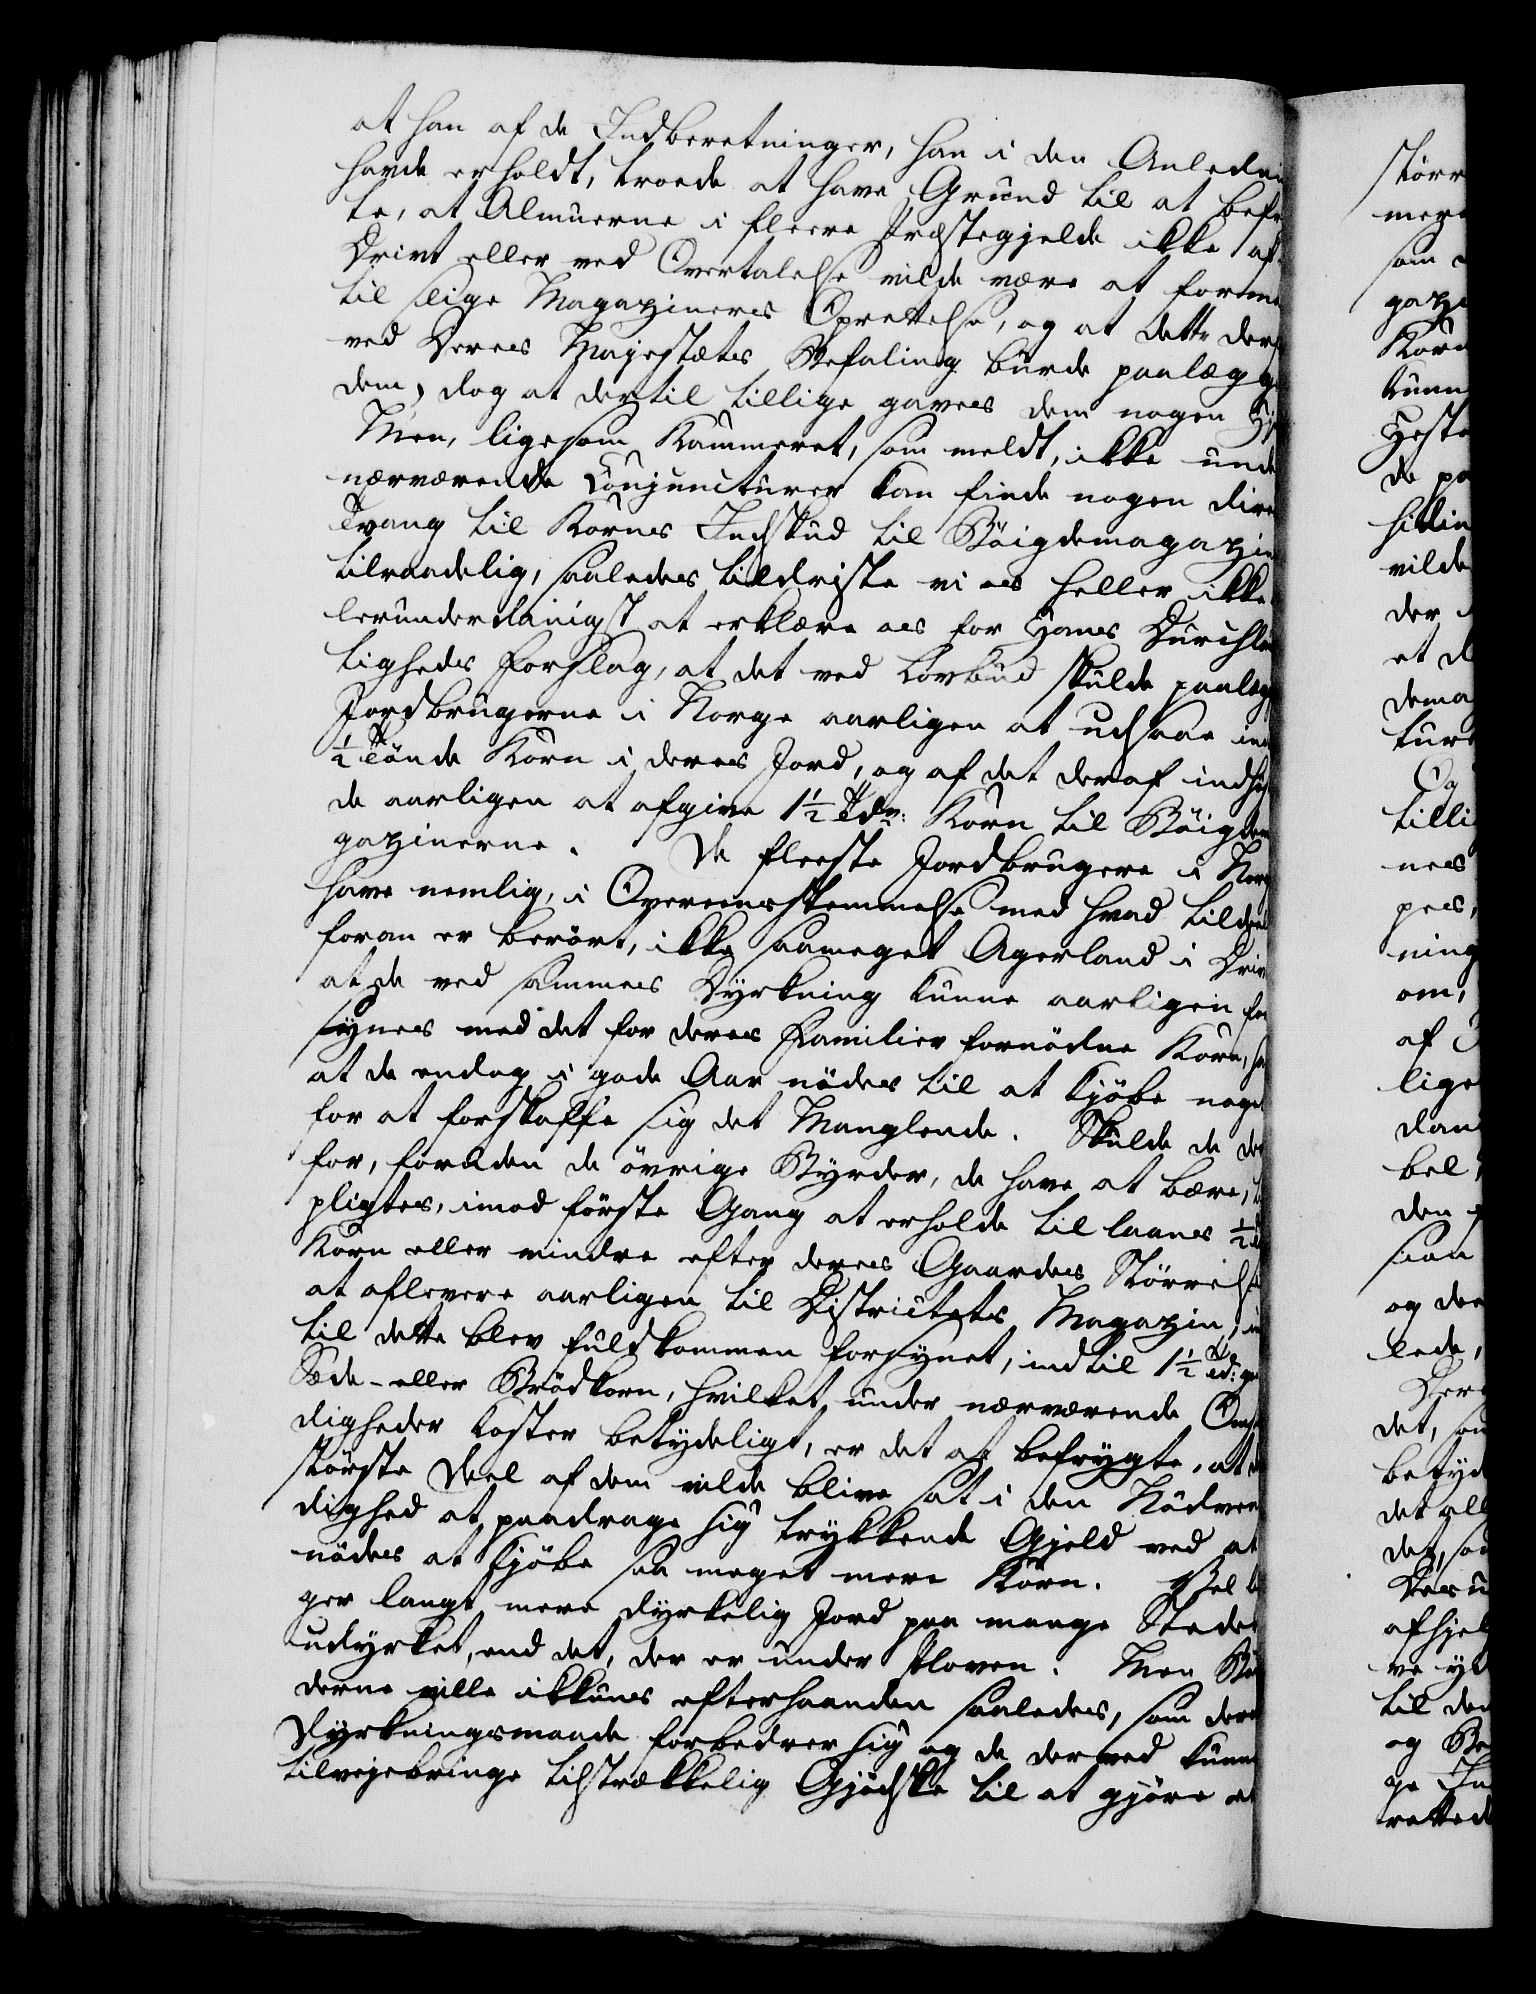 at han af de Indberetninger, han i den Anledni
havde erholdt, troede at have Grund til at befr
te, at Almuerne i fleere Præstegjelde ikke af
Drivt eller ved Overtalelse vilde være at forma
til slige Magazineres Oprettelse, og at dette der
ved Deres Majestæts Befaling burde paalægge
dem, dog at dertil tillige gaves dem nogen Hj
Men, ligesom Kammeret, som meldt, ikke unde
nærværende Conjuncturer kan finde nogen dire
Tvang til Kornes Indskud til Böigdemagazin
tilraadelig, saaledes tildriste vi os heller ikke
lerunderdanigst at erklære os for Hans Durchla
tigheds Forslag, at det ved Lovbud skulde paalæg
Jordbrugerne i Norge aarligen at udsaae in
½ Tönde Korn i deres Jord, og af det deraf indhö
de aarligen at afgive 1½ Tdr: Korn til Böigdem
gazinerne. De fleeste Jordbrugere i Nor
have nemlig, i Overeensstemmelse med hvad tildeel
foran er berört, ikke saameget Agerland i Driv
at de ved sammes Dyrkning kunne aarligen for
synes med det for deres Familier fornödne Korn, sa
at de endog i gode Aar nödes til at kjöbe noge
for at forskaffe sig det Manglende. Skulde de der
for, foruden de övrige Byrder, de have at bære,
pligtes, imod förste Gang at erholde til laans ½
Korn eller mindre efter deres Gaardes Störrelse
at aflevere aarligen til Districtets Magazin, in
til dette blev fuldkommen forsynet, indtil 1½ Td: g
Sæde- eller Brödkorn, hvilket under nærværende Oms
digheder koster betydeligt, er det at befrygte, at
störste Deel af dem vilde blive sat i den Nödven
dighed at paadrage sig trykkende Gjeld ved at
nödes at kjöbe saa meget mere Korn. Vel
ger langt mere dyrkelig Jord paa mange Stede
udyrket, end det, der er under Ploven. Men Bön
derne ville ikkuns efterhaanden saaledes, som dere
Dyrkningsmaade forbedrer sig og de derved kunn
tilvejebringe tilstrækkelig Gjödske til at gjöre
störr
mere
som
gazi
Korn
kunn
Heste
de pa
hidin
vilde
der
et
dema
ture
Og
tilli
nes
pes,
ning
om,
af
lige
dan
bel
den
saa
og der
lede,
Der
det, so
betyd
det all
det, so
Desu
afhjel
ve yd
til den
og Be
ge In
retted